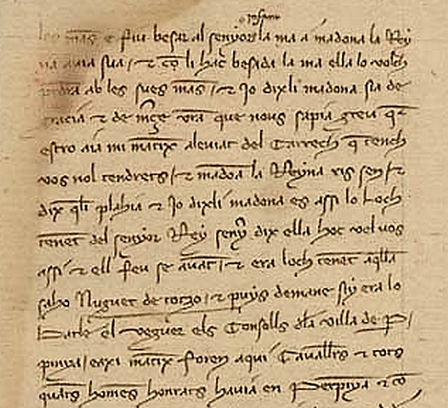 infant
les mans e fiu besar al senyor la ma a madona la Rey
na avia sua / e com li hac besada la ma ella lo volch
pendre ab les sues mans / e Jo dixli madona sia de
gracia e de merce vostra que nous sapia greu que
estro aia mi mateix aleviat del Carrech que tench
vos nol tendrets / e madona la Reyna ris sen / e
dix que li plahia e Jo dixli madona es assi lo loch
tenent del senyor Rey senyer dix ella hoc vel vos
assi e ell feu se avant / e era loch tenent aquella
saho Huguet de / e puys demane si y era lo
Batle el veguer els Consolls dela villa de Per
pinya / eaxi mateix foren aqui Cavallers e tots
quants homens honrats havia en Perpinya e com